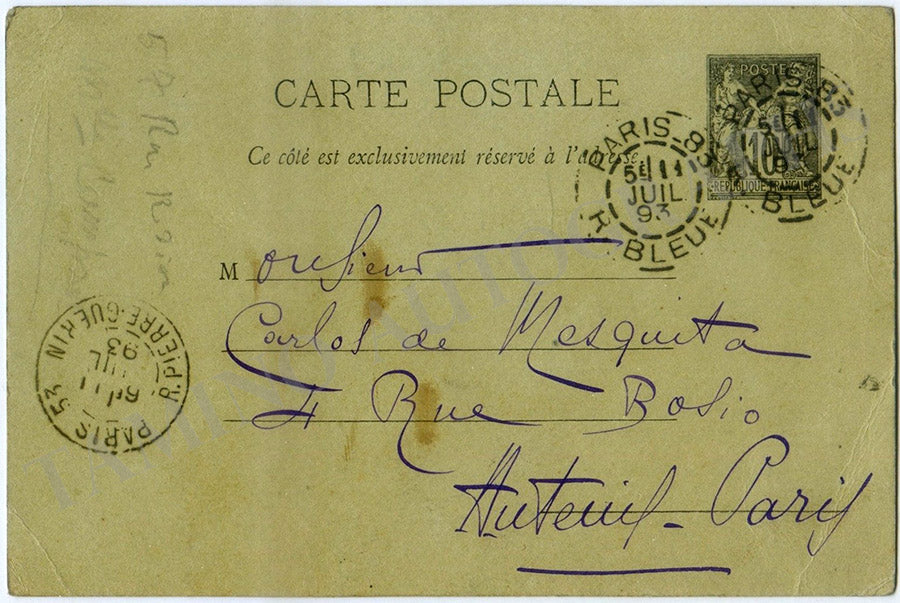 CARTE POSTALE
Ce côté est exclusivement réservé à l'adresse.
POSTES
10
REPUBLIQUE FRANÇAISE
PARIS-83
5E 11
JUIL
93
R. BLEUE
PARIS-83
5E 11
JUIL
93
R. BLEUE
Monsieur
Carlos de Mesquita
4 Rue Bosio
Auteuil-Paris
R. PIERRE-GUERIN
11
JUIL
93
PARIS 53
57 Rue
TAMINO AUTOGRAPHS